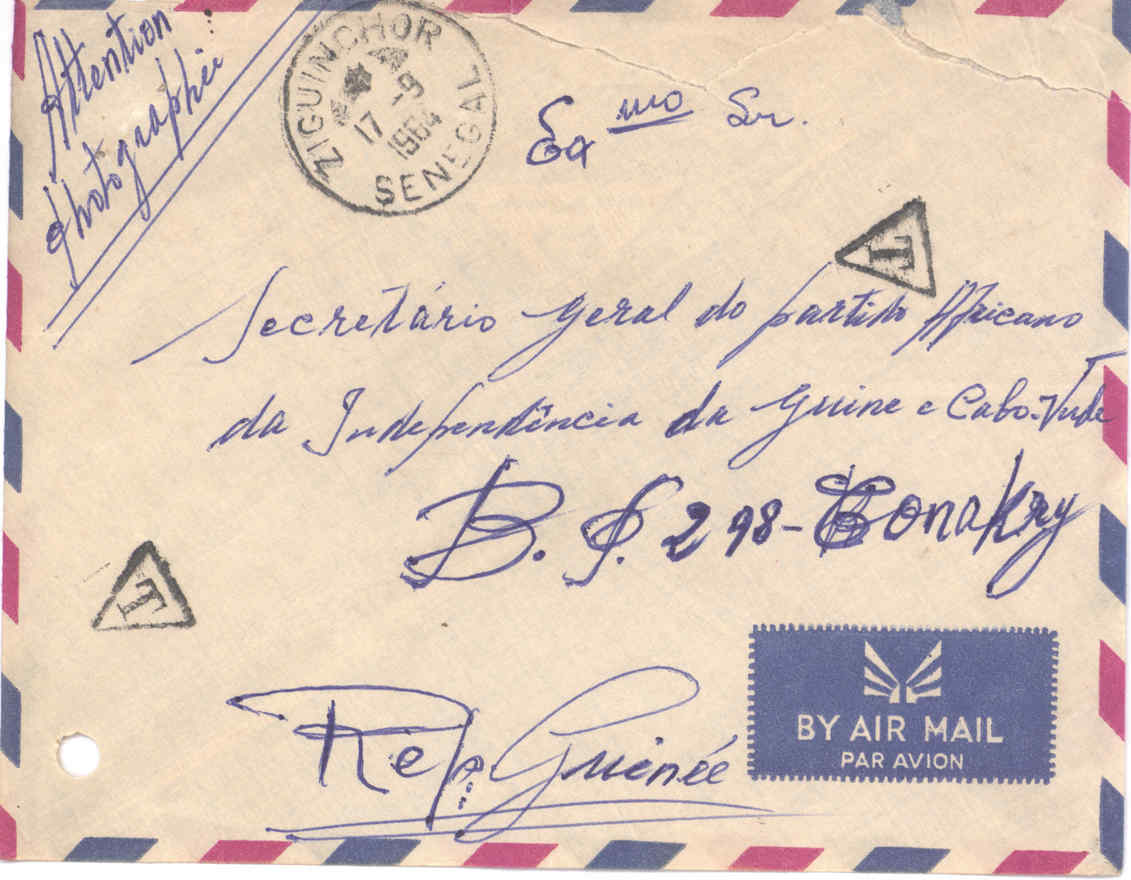 Attention !
photographie
ZIGUINCHOR
17 -9
1964
SENEGAL
Exmo Sr.
T
Secretário Geral do partido Africano
da Independência da Guine e Cabo-Verde
B. P. 298-Conakry
T
Rep. Guinée
BY AIR MAIL
PAR AVION